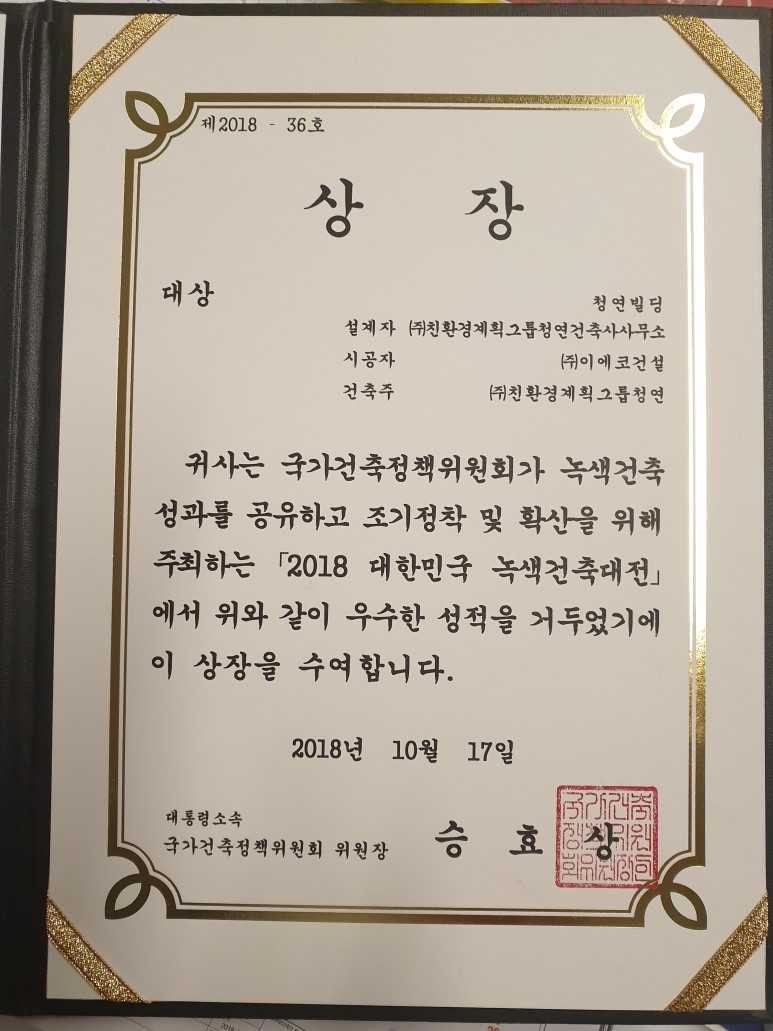 제2018 - 36호
상 장
대상
청연빌딩
설계자 ㈜친환경계획그룹청연건축사사무소
시공자 ㈜이에코건설
건축주 ㈜친환경계획그룹청연
귀사는 국가건축정책위원회가 녹색건축
성과를 공유하고 조기정착 및 확산을 위해
주최하는 「2018 대한민국 녹색건축대전」
에서 위와 같이 우수한 성적을 거두었기에
이 상장을 수여합니다.
2018년 10월 17일
대통령소속
국가건축정책위원회 위원장 승 효 상